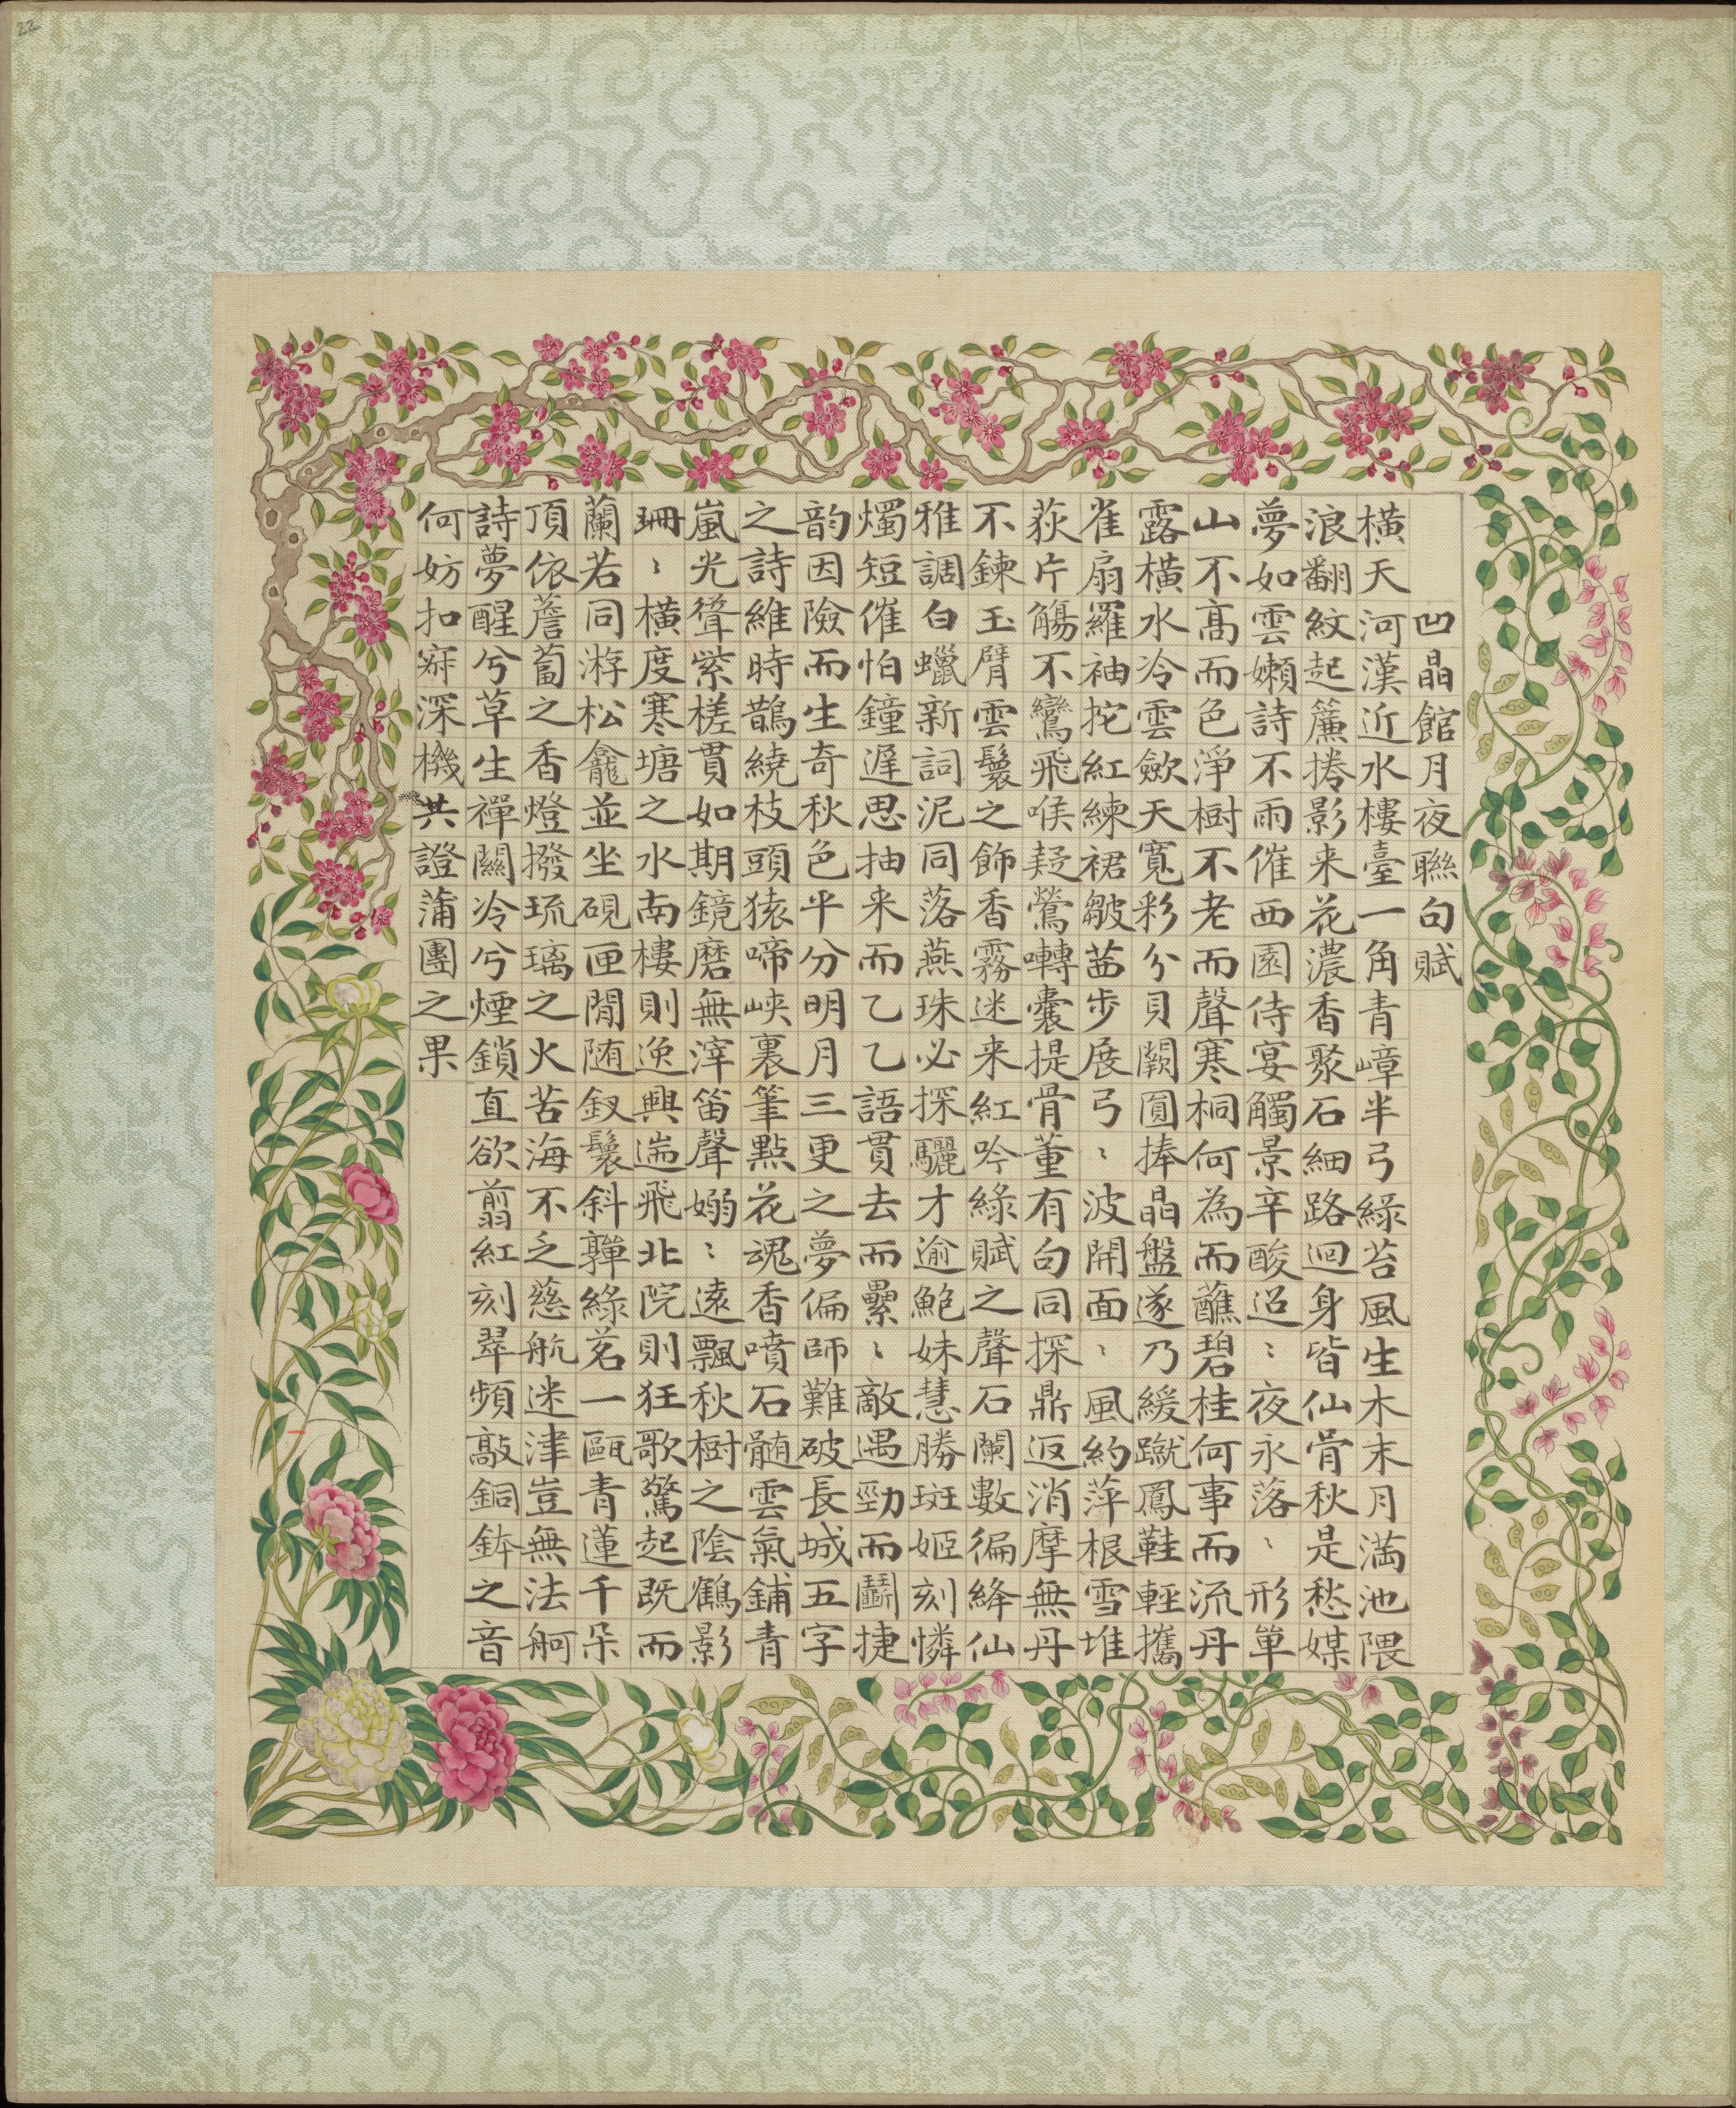 22
凹晶館月夜聯句賦
橫天河漢近水樓臺一角青嶂半弓綠苔風生木末月滿池隈
浪翻紋起簾捲影来花濃香聚石細路迴身皆仙骨秋是愁媒
夢如雲嬾詩不雨催西園侍宴觸景辛酸迢〻夜永落〻形單
山不高而色淨樹不老而聲寒桐何為而蘸碧桂何事而流丹
露橫水冷雲歛天寬彩分貝闕圓捧晶盤遂乃緩蹴鳳鞋輕攜
雀扇羅袖拕紅練裙皺茜步展弓〻波開面〻風約萍根雪堆
荻片觴不鸞飛喉疑鶯囀囊提骨董有句同探鼎返消摩無丹
不鍊玉臂雲鬟之飾香霧迷来紅吟綠賦之聲石闌數徧絳仙
雅調白蠟新詞泥同落燕珠必探驪才逾鮑妹慧勝班姬刻憐
燭短催怕鐘遲思抽来而乙乙語貫去而纍〻敵遇勁而鬭捷
韵因險而生奇秋色平分明月三更之夢偏師難破長城五字
之詩維時鵲繞枝頭猿啼峽裏筆點花魂香噴石髓雲氣鋪青
嵐光聳紫槎貫如期鏡磨無滓笛聲嫋〻遠飄秋樹之陰鶴影
珊〻橫度寒塘之水南樓則逸興遄飛北院則狂歌驚起既而
蘭若同游松龕並坐硯匣閒随釵鬟斜嚲綠茗一甌青蓮千朵
頂依薝蔔之香燈撥琉璃之火苦海不乏慈航迷津豈無法舸
詩夢醒兮草生禪關冷兮煙鎖直欲翦紅刻翠頻敲銅鉢之音
何妨扣寂深機共證蒲團之果